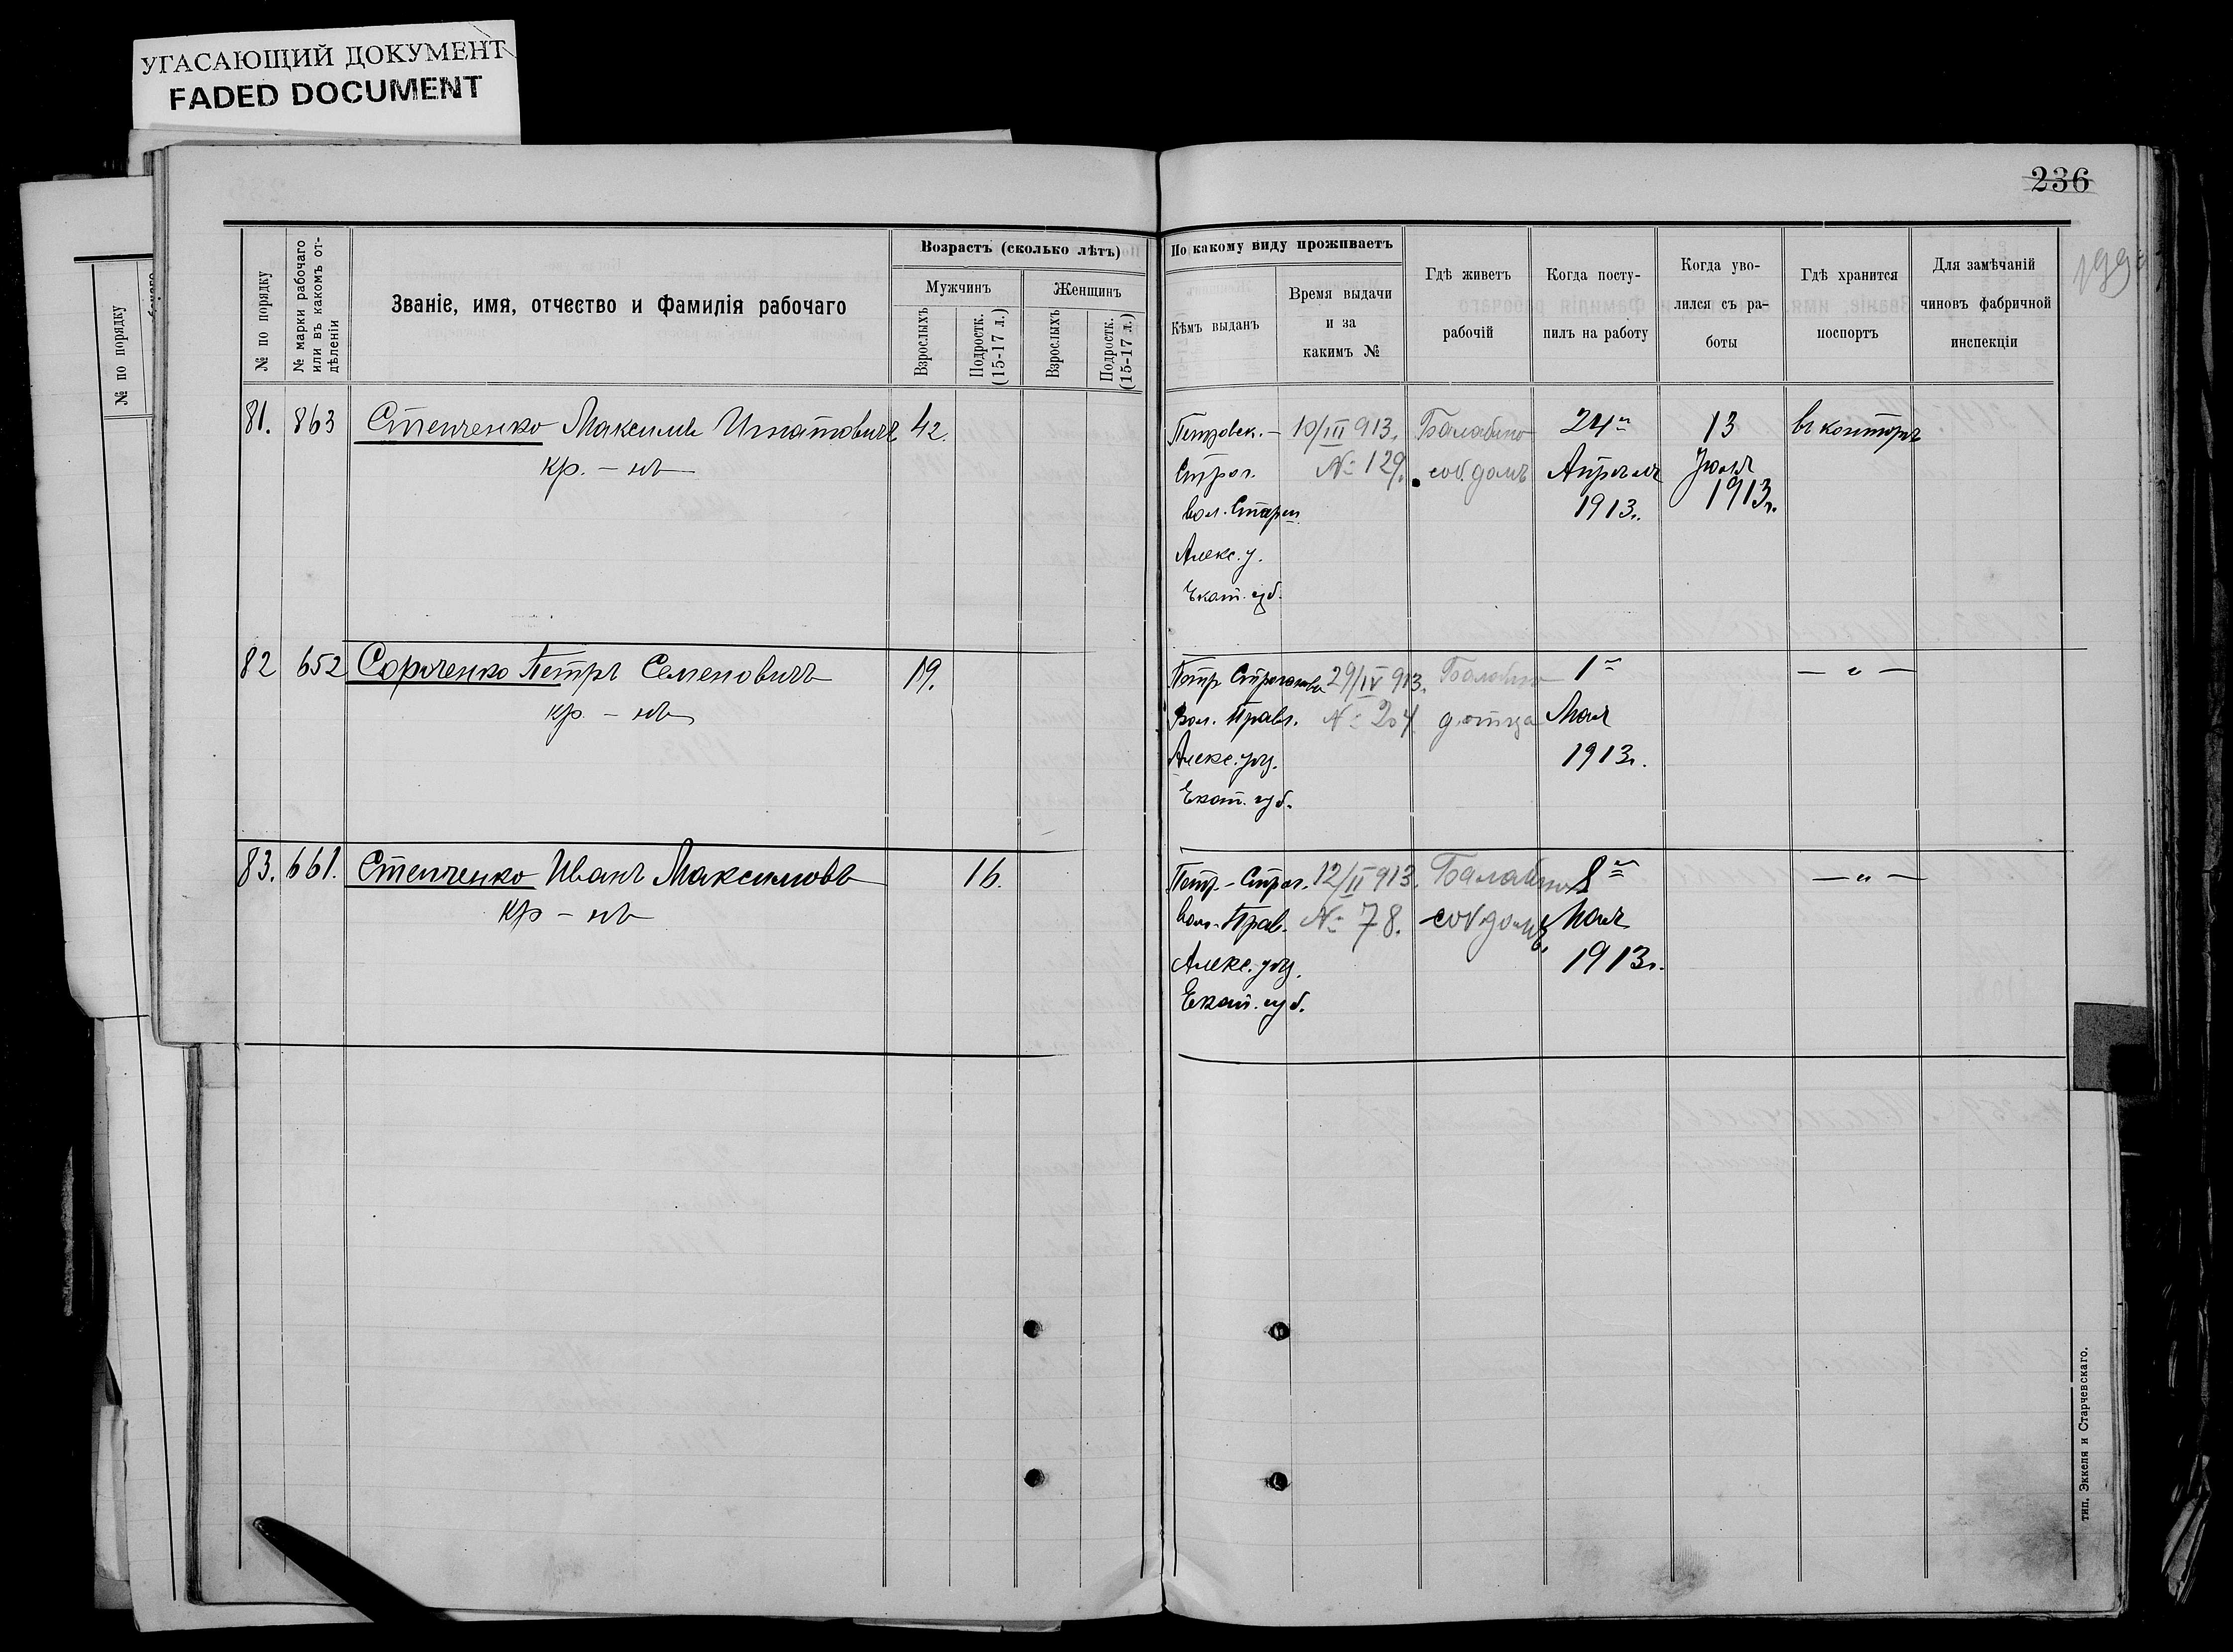 УГАСАЮЩИЙ ДОКУМЕНТ
FADED DOCUMENT
236
№ по порядку
№ по порядку
№ марки рабочаго
или въ какомъ от-
дѣленіи
Званіе, имя, отчество и фамилія рабочаго
Возрастъ (сколько лѣтъ)
Мужчинъ
Женщинъ
Взрослыхъ
Подростк.
(15-17 л.)
Взрослыхъ
Подростк.
(15-17 л.)
По какому виду проживаетъ
Кѣмъ выданъ
Время выдачи
и за
какимъ №
Гдѣ живетъ
рабочій
Когда посту-
пилъ на работу
Когда уво-
лился съ ра-
боты
Гдѣ хранится
поспортъ
Для замѣчаній
чиновъ фабричной
инспекціи
81. 863 Степченко Максимъ Игнатовичъ 42.
кр. – нъ
Петровск. –
Строг.
вол. Старш.
Алекс. у.
Екат. губ.
10/III 913.
№ 129.
Балабино
соб. домъ
24го
Апрѣля
1913г.
13
Іюля
1913г.
въ конторѣ
82 652 Сорченко Петръ Семеновичъ 19.
кр. – нъ
Петр
Вол. Правл.
Алекс. уѣз.
Екат. губ.
29/IV 913.
№ 204
Балабино
д. отца
1го
Мая
1913г.
— „ —
83. 661. Степченко Иванъ Максимовъ 16.
кр – нъ
Петр. – Строг.
вол. Прав.
Алекс. уѣз.
Екат. губ.
12/II 913.
№ 78.
Балабино
соб домъ
8го
Мая
1913г.
— „ —
тип. Эккеля и Старчевскаго.